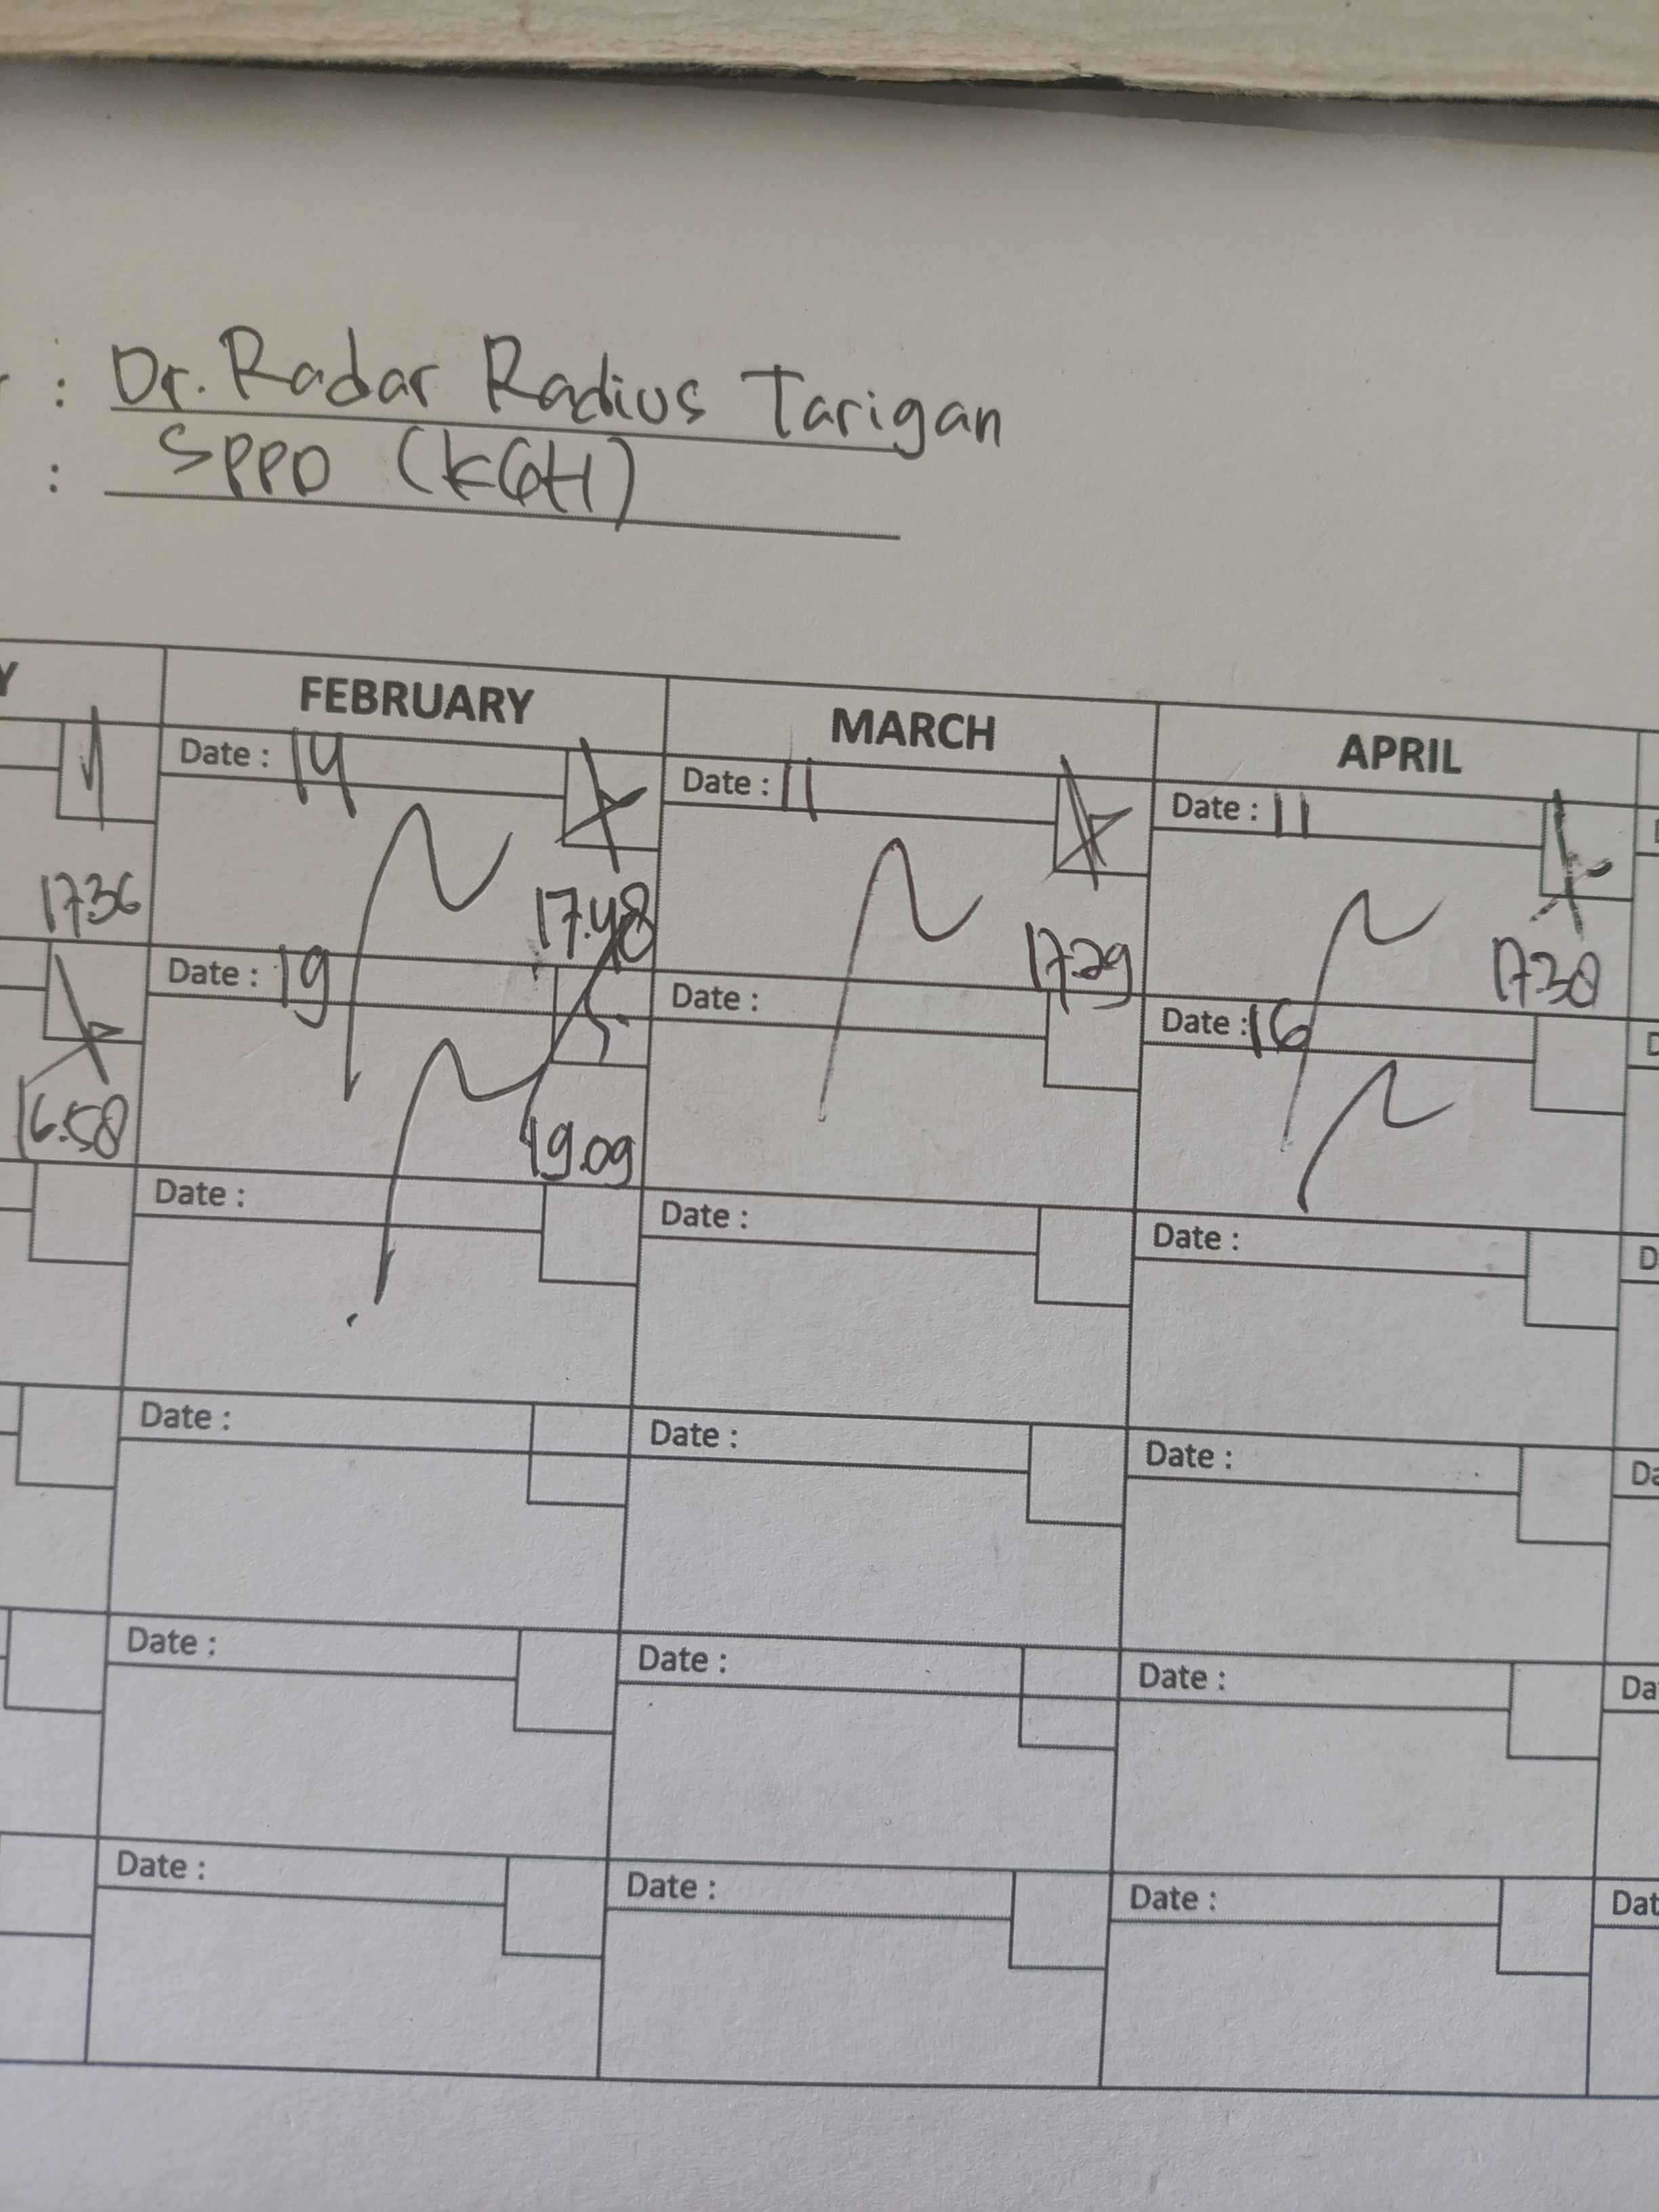 : Dr. Radar Radius Tarigan
: SPPD (KGH)
Y FEBRUARY MARCH APRIL
Date : 14 Date : 11 Date : 11
17.36 17.48 17.29 17.30
Date : 19 Date : Date : 16
16.58 19.09
Date : Date : Date :
Date : Date : Date :
Date : Date : Date :
Date : Date : Date :